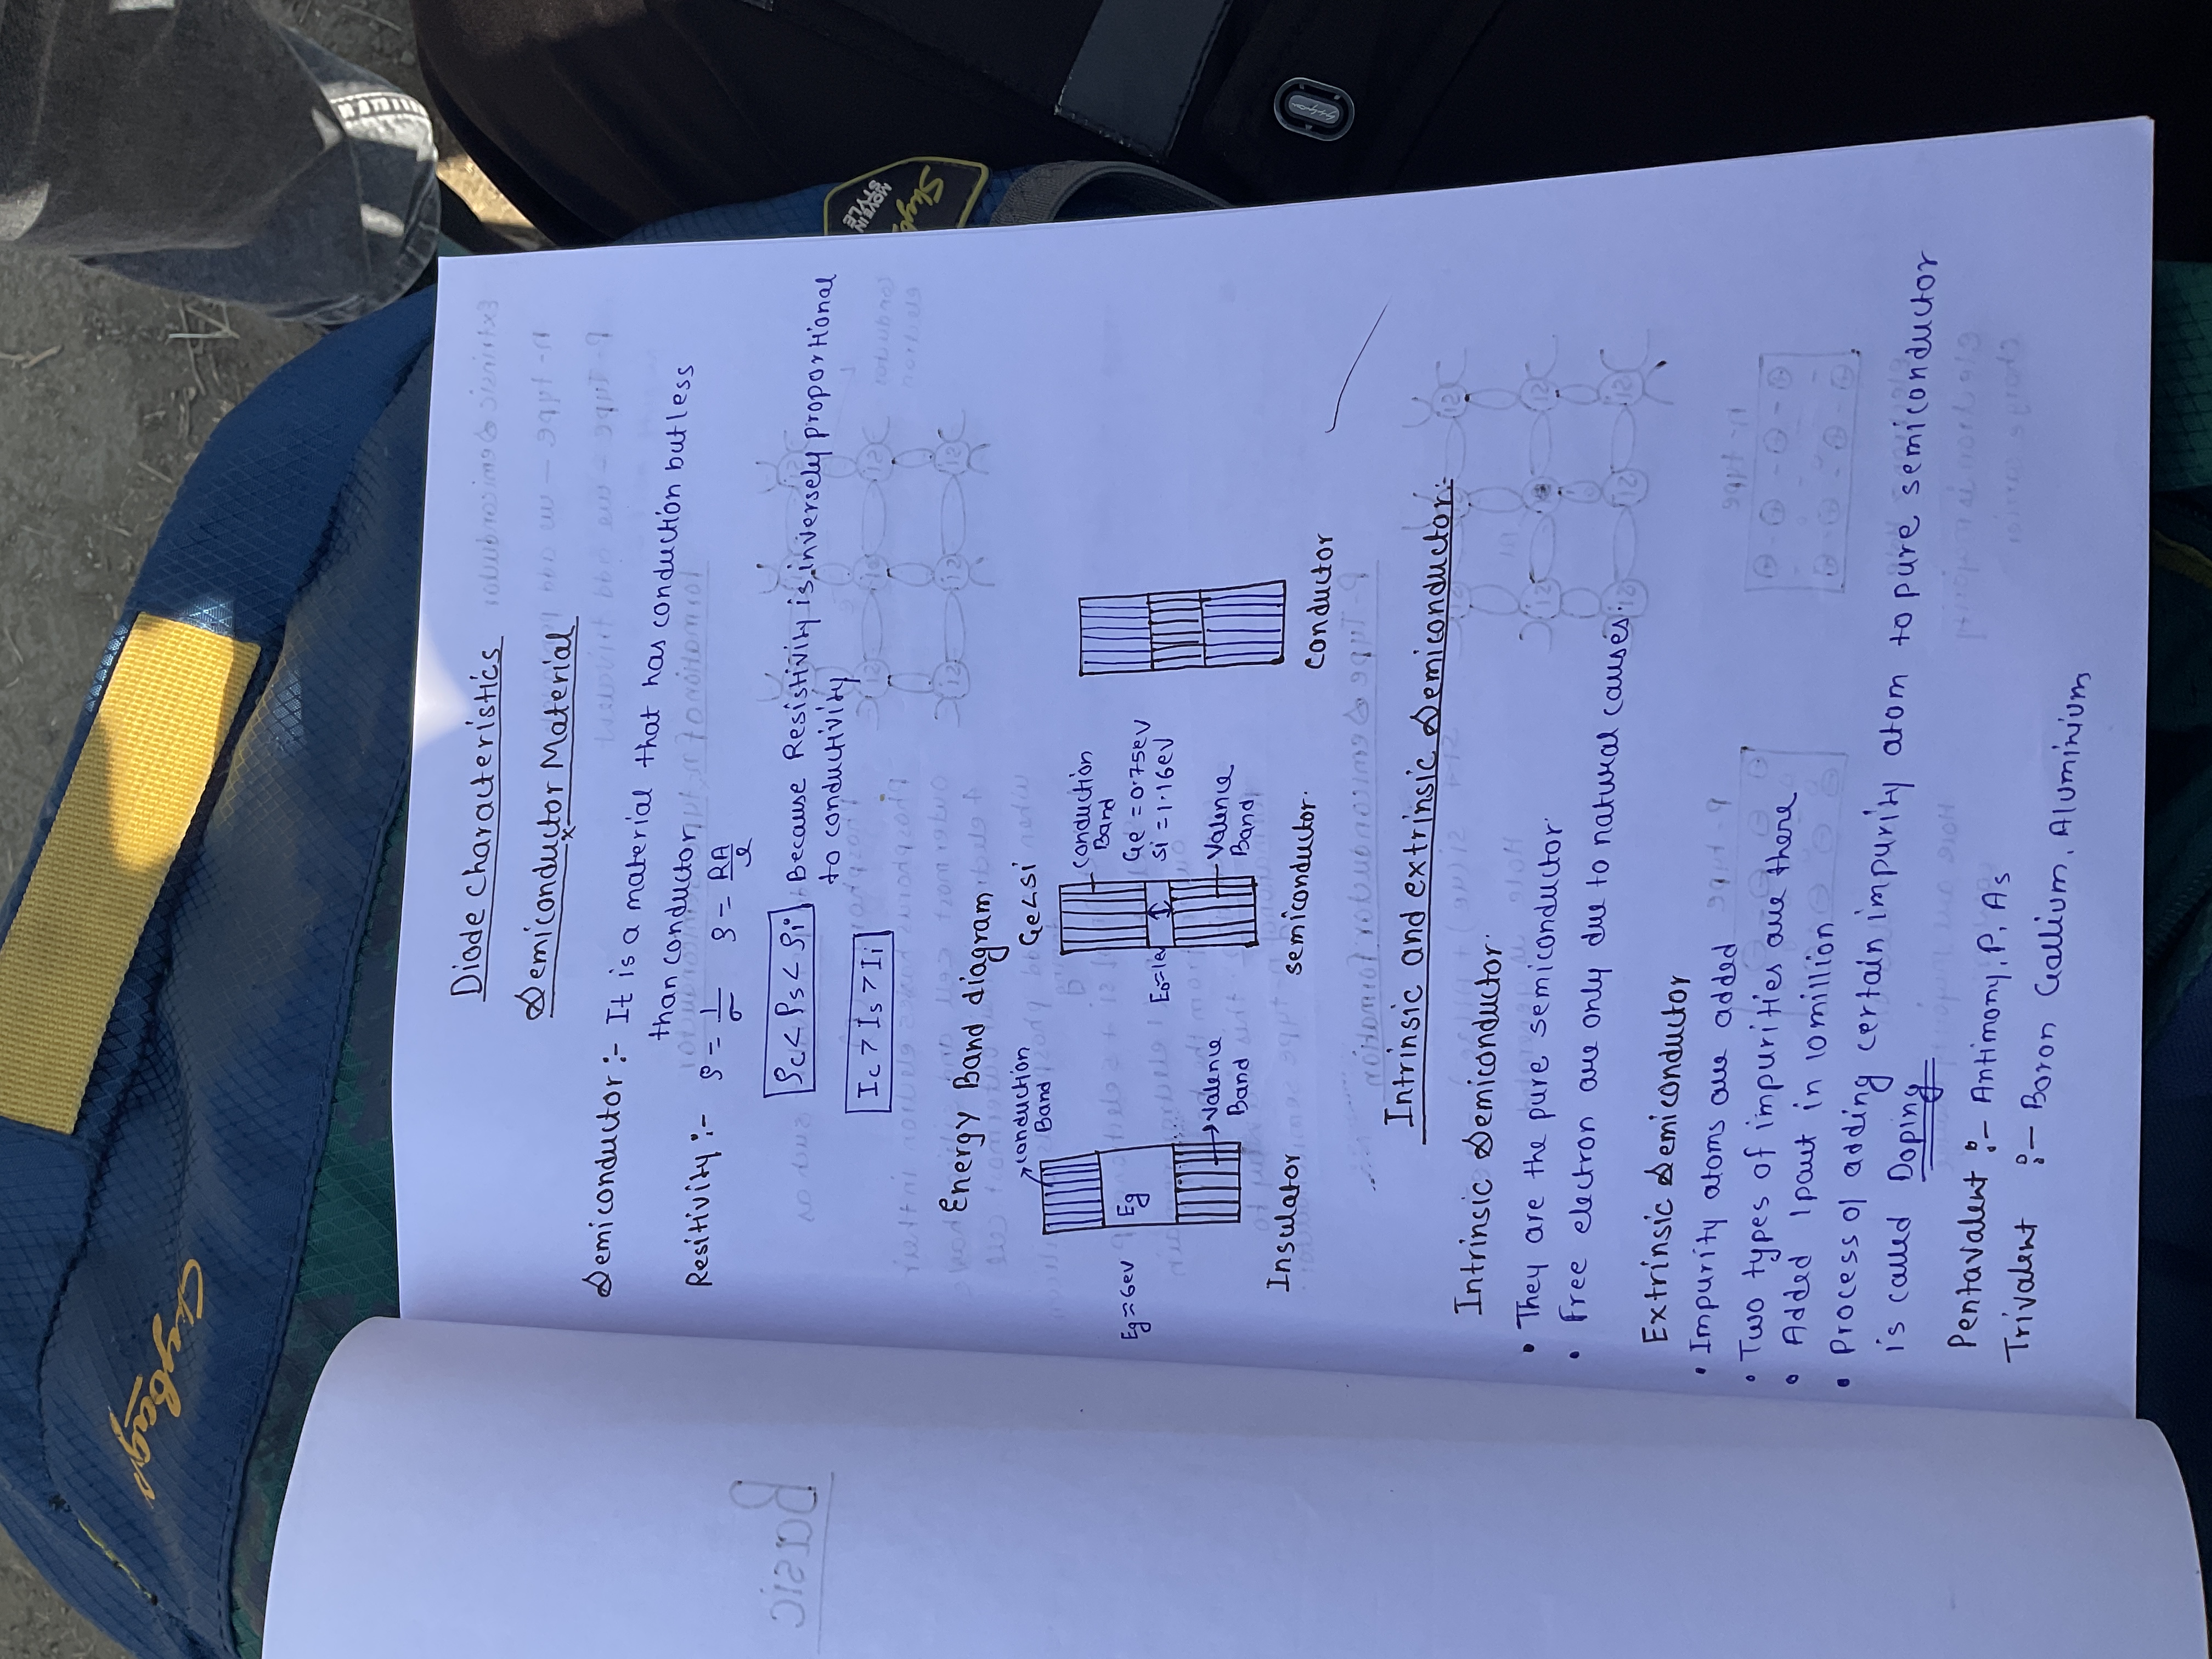 Skybags
Diode Characteristics
Semiconductor Material
x
Semiconductor :- It is a material that has conduction but less
than conductor
Resitivity :- ρ = 1/σ ρ = RA/l
ρc < ρs < ρi Because Resistivity is inversely proportional
to conductivity
Ic > Is > Ii
MOVE IN
STYLE
Skybags
Basic
Energy Band diagram
conduction
Band
Eg ≈ 6ev
Eg
Valence
Band
Insulator
Ge < Si
conduction
Band
Ge = 0.75ev
Si = 1.16ev
Valence
Band
semiconductor.
conductor
Intrinsic and extrinsic Semiconductor:-
Intrinsic Semiconductor.
• They are the pure semiconductor.
• Free electron are only due to natural causes.
Extrinsic Semiconductor
• Impurity atoms are added
• Two types of impurities are there
• Added 1 part in 10 million
• Process of adding certain impurity atom to pure semiconductor
is called Doping
Pentavalent :- Antimony, P, As
Trivalent :- Boron Gallium, Aluminium